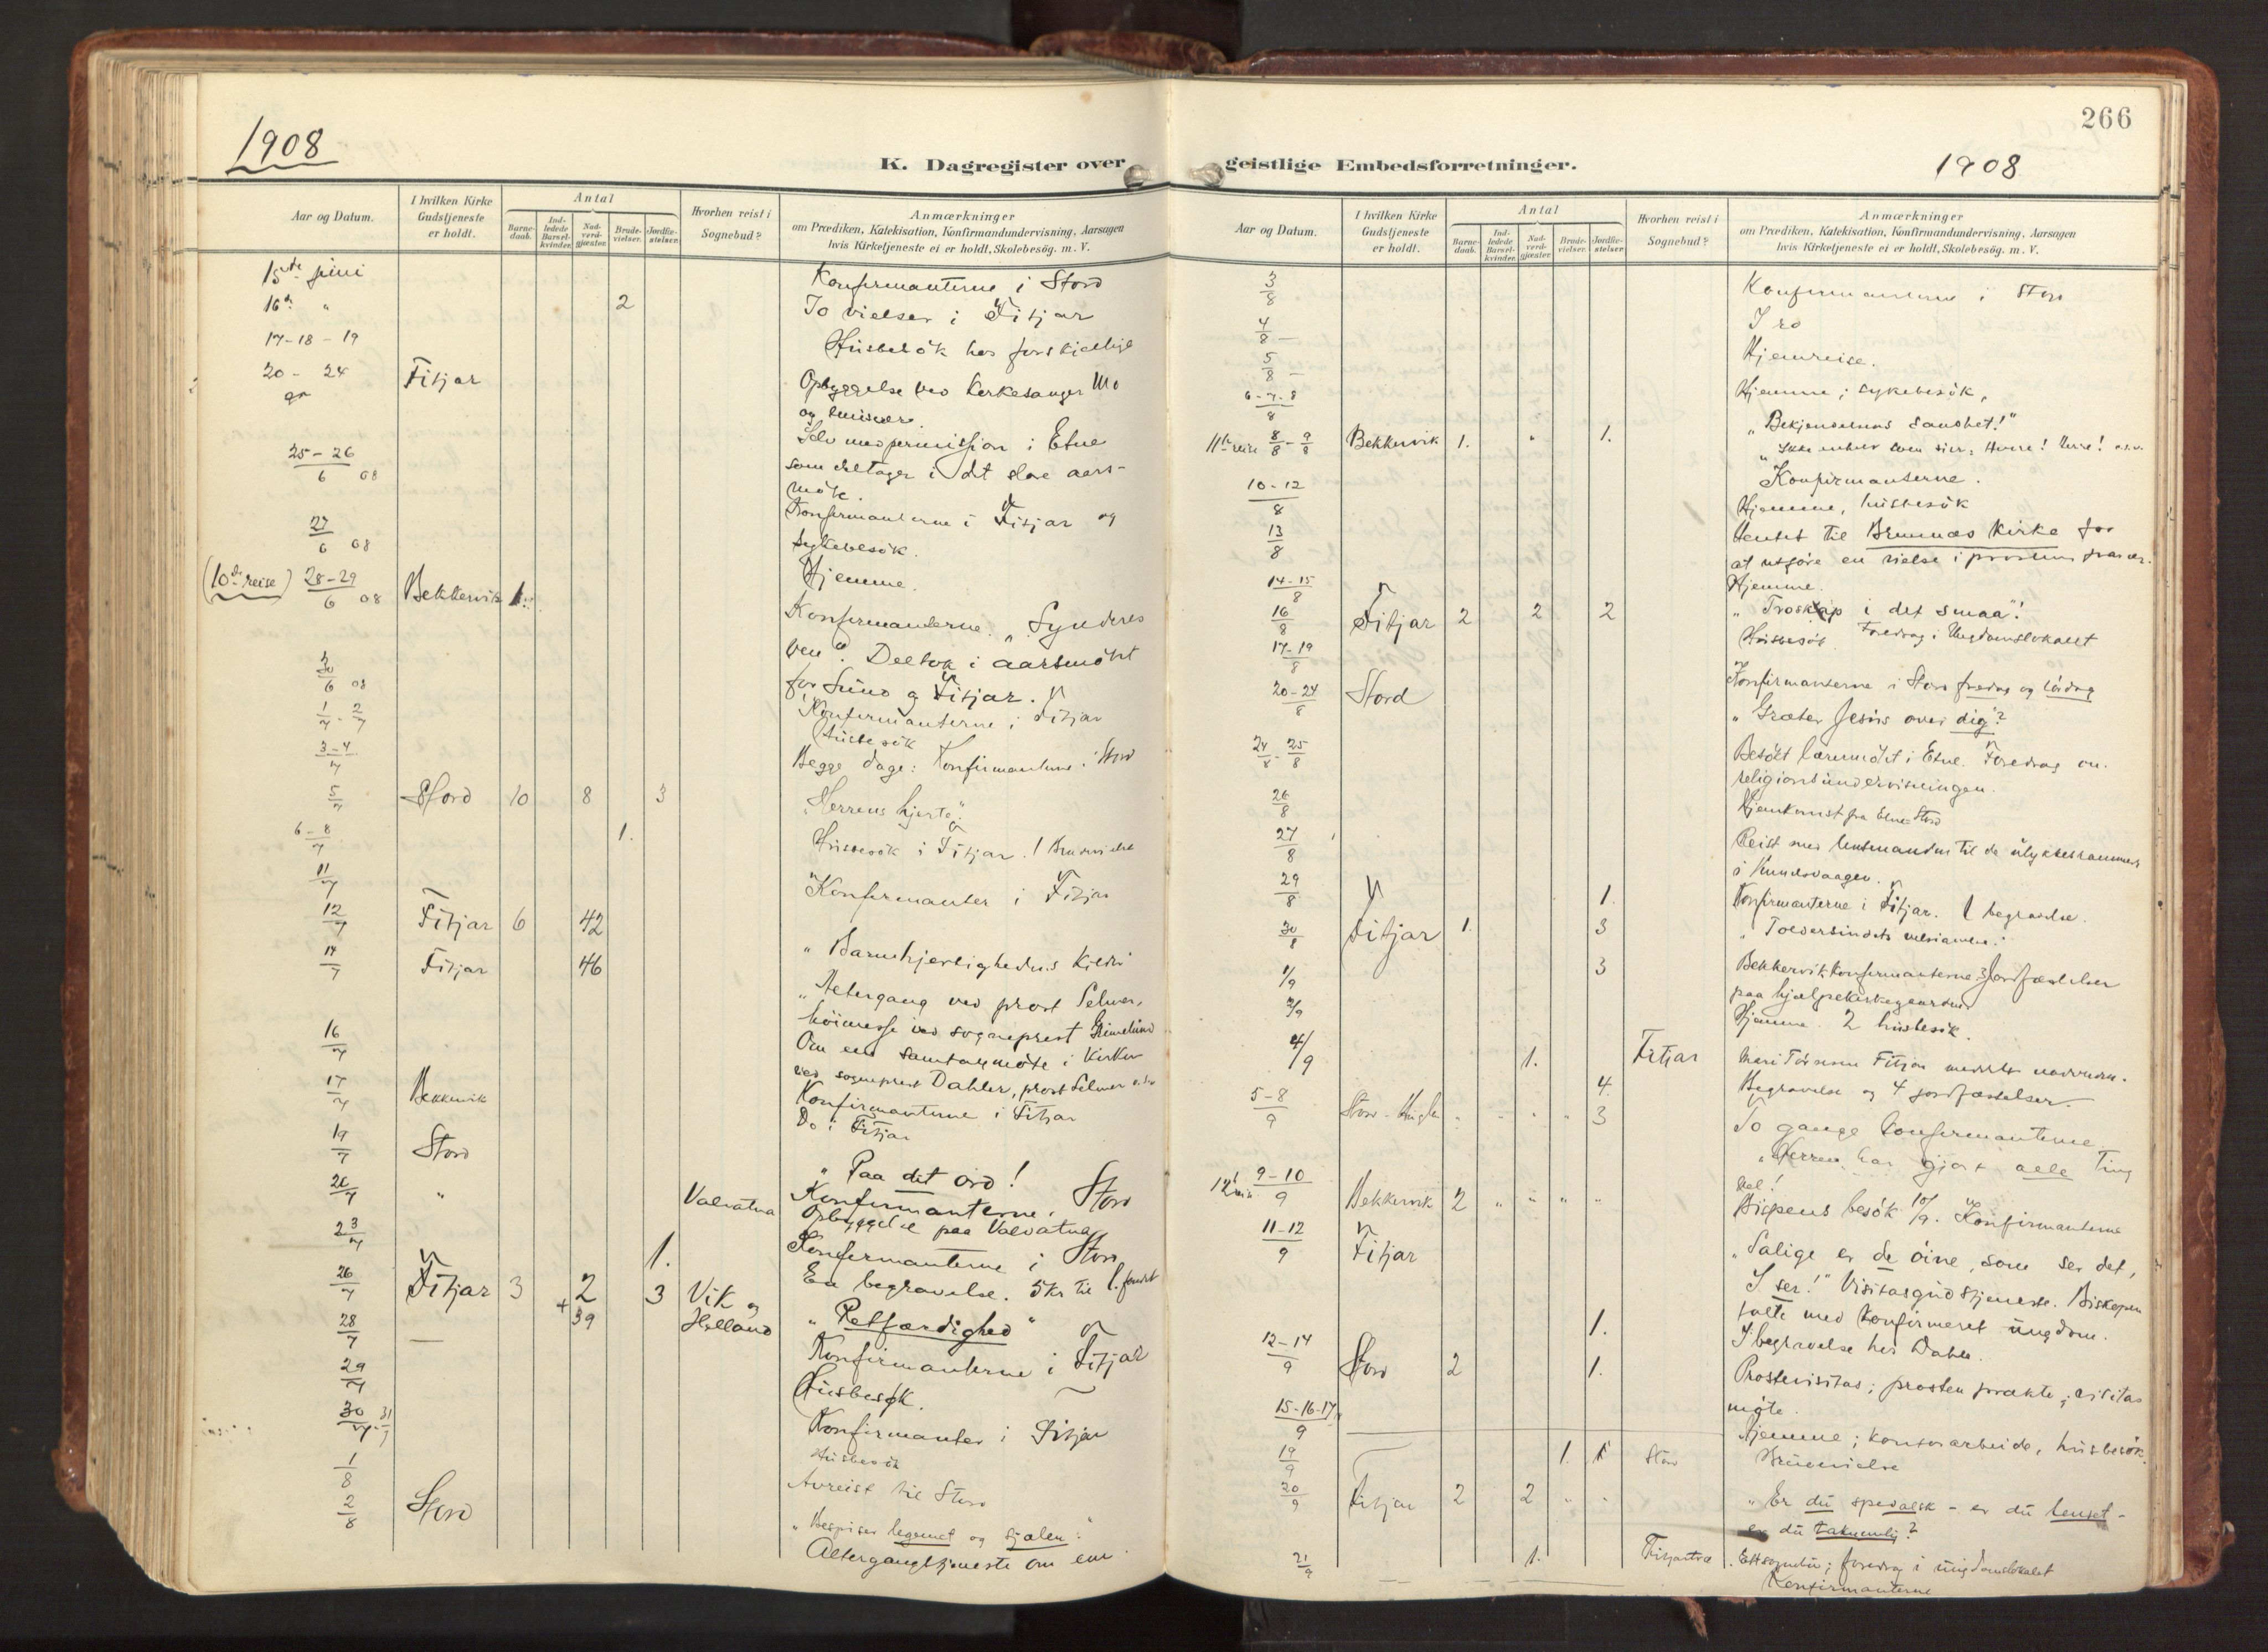 1908
K. Dagregister over
Aar og Datum.
I hvilken Kirke
Gudstjeneste
er holdt.
Antal
Barne-
daab.
Ind-
ledede
Barsel-
kvinder.
Nad-
verd-
gjæster.
Brude-
vielser.
Jordfæ-
stelser.
Hvorhen reist i
Sognebud?
Anmærkninger
om Prædiken, Katekisation, Konfirmandundervisning, Aarsagen
hvis Kirketjeneste ei er holdt, Skolebesøg. m. V.
15de juni Konfirmanterne i Stord
16de " 2 To vielser i Fitjar
17-18-19 Husbesök hos forskjellige
20 - 24 Fitjar Opbyggelse ved kirkesanger Mo
og
25-26/6 08 Selv med permission i Etne
som deltager i det store aars-
möte.
27/6 08 Konfirmanterne i Fitjar og
sykebesök.
(10de reise) 28-29/6 08 Bekkervik 1. Hjemme
Konfirmanderne. "Synderes
ven". Deltok i aarsmötet
30/6 08 for Sund og Fitjar.
1/7 - 2/7 Konfirmanterne i Fitjar
Husbesök
3-4/7 Begge dage: Konfirmanterne i Stord
5/7 Stord 10 8 3 "Herrens hjerte".
6-8/7 1. Husbesök i Fitjar. 1 Brudevielse
11/7 Konfirmanter i Fitjar
12/7 Fitjar 6 42
14/7 Fitjar 46 "Barmhjertighedens Kilde"
"Altergang ved prost Selmer,
höimesse ved sogneprest Grimelund
16/7 Om em samtalemöte i Kirken
ved sogneprest Dahler, prost Selmer o.s.v
17/7 Bekkervik Konfirmanterne i Fitjar
Do i Fitjar
19/7 Stord "Paa dit ord!
20/7 " Valvatna Konfirmanterne. Stord
Opbyggelse paa Valvatna
23/7 1. Konfirmanterne i Stord
En begravelse. 5 kr til
26/7 Fitjar 3 2 + 39 3 Vik og
Helland "Retfærdighed"
28/7 — Konfirmanterne i Fitjar
29/7 Husbesök.
30/7-31/7 Konfirmanter i Fitjar
Husbesök
1/8 Avreist til Stord
2/8 Stord "Bespiser legemet og sjælen".
Altergangstjeneste om em
266
geistlige Embedsforretninger.
1908
Aar og Datum.
I hvilken Kirke
Gudstjeneste
er holdt.
Antal
Barne-
daab.
Ind-
ledede
Barsel-
kvinder.
Nad-
verd-
gjæster.
Brude-
vielser.
Jordfæ-
stelser.
Hvorhen reist i
Sognebud?
Anmærkninger
om Prædiken, Katekisation, Konfirmandundervisning, Aarsagen
hvis Kirketjeneste ei er holdt, Skolebesøg. m. V.
3/8 Konfirmanterne i Stord
4/8 — I ro
5/8 — Hjemreise.
6-7-8/8 Hjemme; sykebesök,
11te reise 8/8 - 9/8 Bekkervik 1. " 1. "Bekjendelsens sandhet!"
"Ikke enhver som sier: Herre! Herre! o.s.v.
10-12/8 Konfirmanterne.
Hjemme, husbesök
13/8 Hentet til Bremnæs Kirke for
at utføre en vielse i prostens fravær.
14-15/8 Hjemme.
16/8 Fitjar 2 2 2 "Troskap i det smaa"!
17-19/8 Husbesök. Foredrag i Ungdomslokalet
20-24/8 Stord Konfirmanterne i Stord fredag og lördag
"Græter Jesus over dig"?
24/8 - 25/8 Besökt læremötet i Etne. Foredrag om
religionsundervisningen.
26/8 Hjemkomst fra Etne-Stord
27/8 Reist med lensmanden til de ulykkesrammede
i
29/8 1. Konfirmanterne i Fitjar. 1 begravelse.
30/8 Fitjar 1. 3 "Toldersindets velsignelse."
1/9 3 Bekkervik konfirmanterne 3 Jordfæstelser
paa hjælpekirkegaarden
2/9 Hjemme. 2 husbesök.
4/9 1. Fitjar Fitjar meddelt nadverden.
4. Begravelse og 4 jordfæstelser.
5-8/9 Stord - " " " " 3 To gange konfirmanterne.
"Herren har gjort alle Ting
vel!
12te reise 9-10/9 Bekkervik 2 " " " " Bispens besök 10/9. Konfirmanterne
11-12/9 Fitjar "Salige er de öine, som ser det,
I ser!" Visitasgudstjeneste. Biskopen
talte med konfirmeret ungdom.
1. I begravelse hos Dahle.
12-14/9 Stord 2 1. Prostevisitas; prosten prækte; visitas
möte.
15-16-17/9 Hjemme; kontorarbeide, husbesök.
19/9 1. 1 Stord Brudevielse
20/9 Fitjar 2 2 " " "Er du spedalsk - er du renset -
er du taknemlig?
21/9 1. Fitjar foredrag i ungdomslokalet
Konfirmanterne